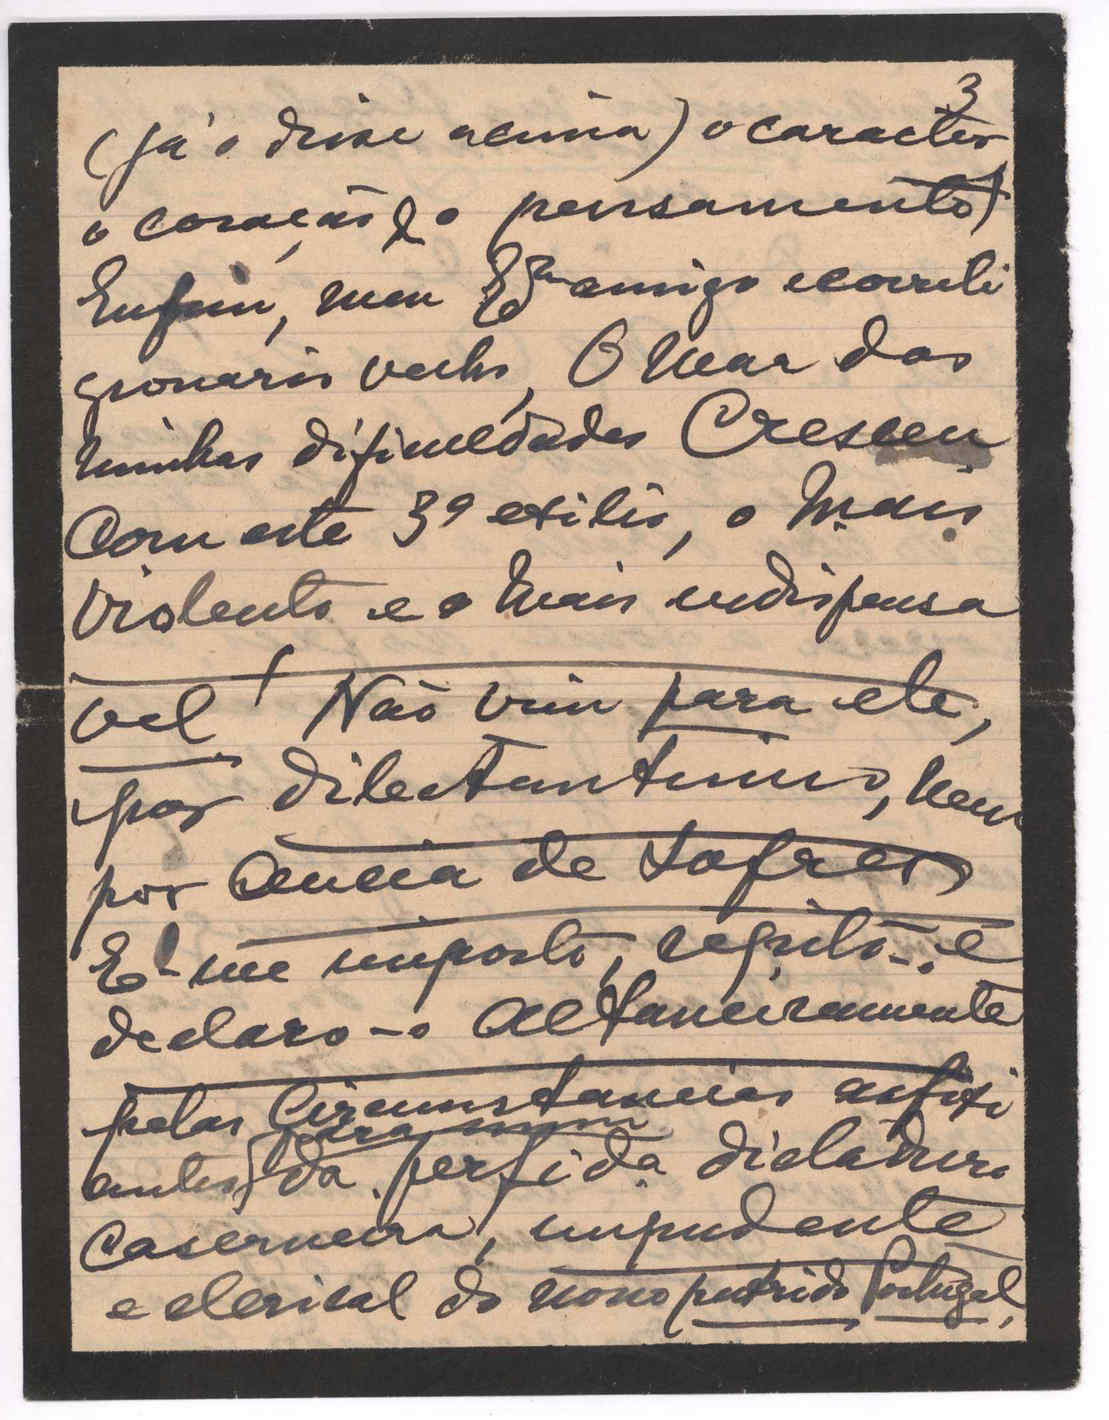 3
(já o disse acima) o caracter
o coração & o pensamento!
Enfim, meu Exmo amigo e correli
gionario velho, O Mar das
minhas dificuldades Cresceu
Com este 3º exilio, o mais
violento e o mais indispensa
vel! Não vim para ele,
por diletantismo, nem
por ancia de sofrer
É-me imposto, repito-o e
declaro-o altaneiramente
pelas Circunstancias asfixi
antes {para mim
da perfida dictadura
Caserneira, impudente
e clerical do nosso putrido Portugal,